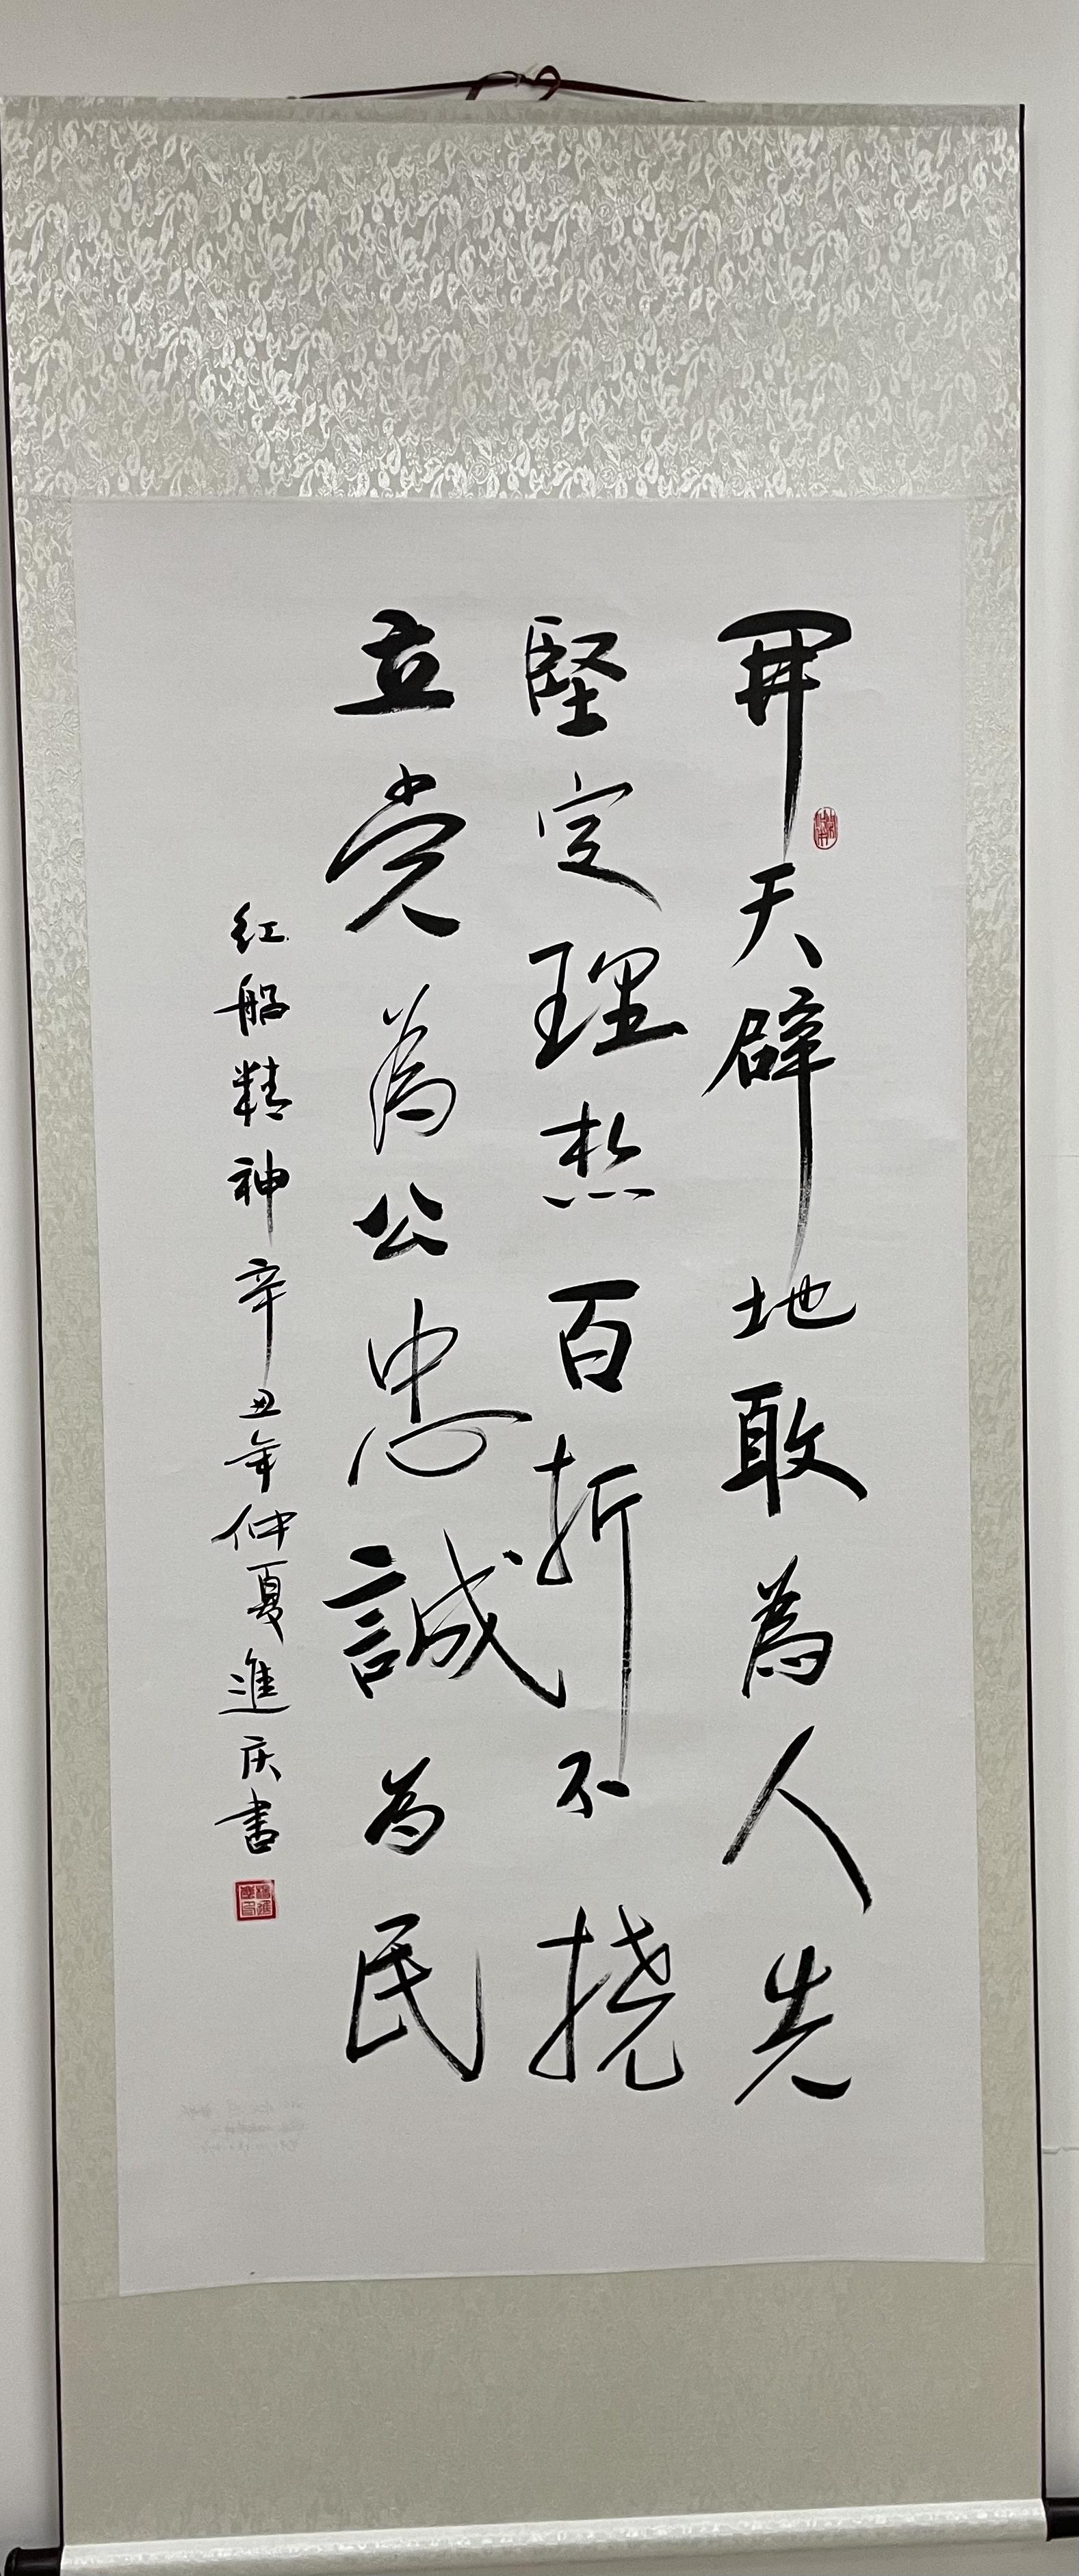 開天辟地敢為人先
堅定理想百折不撓
立党為公忠誠为民
红船精神辛丑年仲夏進庆書